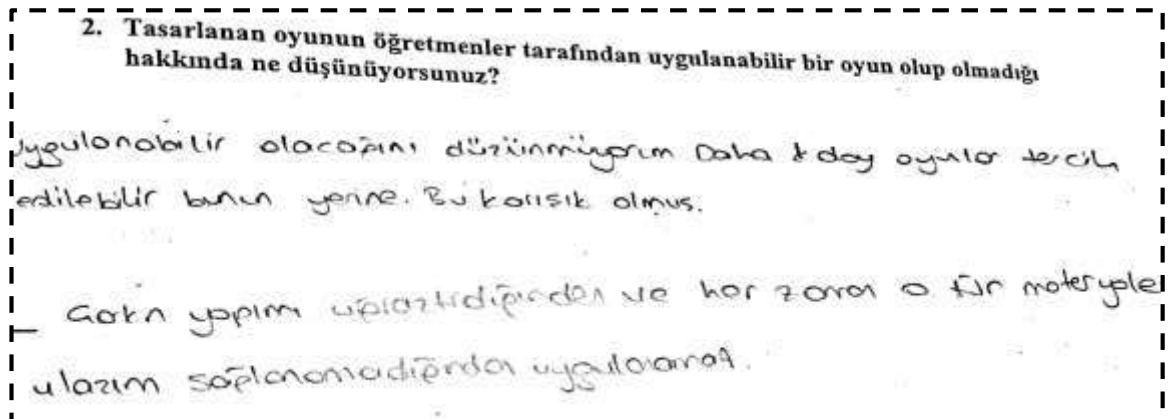 2. Tasarlanan oyunun öğretmenler tarafından uygulanabilir bir oyun olup olmadığı
hakkında ne düşünüyorsunuz?
uygulanabilir olacağını düşünmüyorum Daha kolay oyunlar tercih
edilebilir bunun yerine. Bu karışık olmuş.
yapım uğraştırdığından ve her zaman o tür materyale
ulaşım sağlanamadığından uygulanamaz.